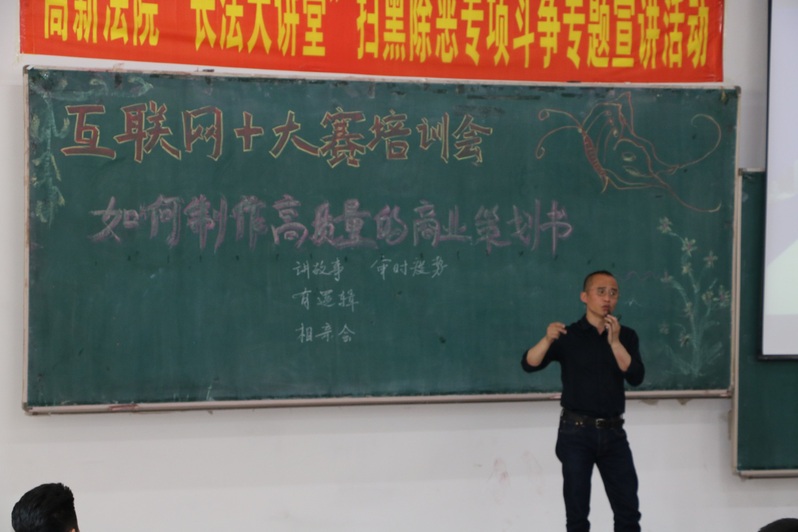 高新法院"长法大讲堂"扫黑除恶专项斗争专题宣讲活动
互联网+大赛培训会
如何制作高质量的商业策划书
讲故事 审时度势
有逻辑
相亲会